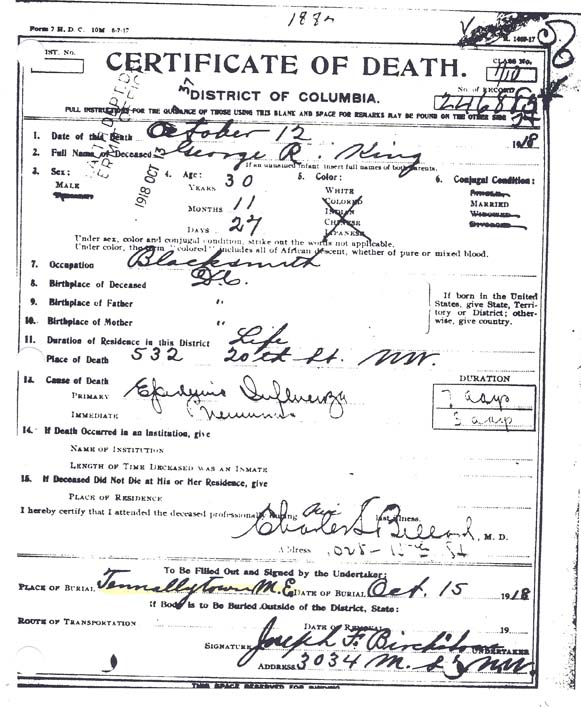 1882
Form 7 H. D. C. 10M 8-7-17
INT. No.
CERTIFICATE OF DEATH.
CLASS No.
110
DISTRICT OF COLUMBIA.
No. of RECORD
FULL INSTRUCTIONS FOR THE GUIDANCE OF THOSE USING THIS BLANK AND SPACE FOR REMARKS MAY BE FOUND ON THE OTHER SIDE
1918 OCT 13
1. Date of this Death October 12 1918
2. Full Name of Deceased George R. King
If an unnamed infant insert full names of both parents.
3. Sex: 4. Age: 5. Color: 6. Conjugal Condition:
MALE YEARS 30 WHITE SINGLE
FEMALE COLORED MARRIED
MONTHS 11 INDIAN WIDOWED
CHINESE DIVORCED
DAYS 27 JAPANESE
Under sex, color and conjugal condition, strike out the words not applicable.
Under color, the term "colored" includes all of African descent, whether of pure or mixed blood.
7. Occupation Blacksmith
8. Birthplace of Deceased D.C.
9. Birthplace of Father "
10. Birthplace of Mother "
If born in the United States, give State, Territory or District; otherwise, give country.
11. Duration of Residence in this District Life
Place of Death 532 20th St. NW.
DURATION
13. Cause of Death
PRIMARY Epidemic Influenza 7 days
IMMEDIATE Pneumonia 3 days
14. If Death Occurred in an Institution, give
NAME OF INSTITUTION
LENGTH OF TIME DECEASED WAS AN INMATE
15. If Deceased Did Not Die at His or Her Residence, give
PLACE OF RESIDENCE
I hereby certify that I attended the deceased professionally during last illness.
Charles , M. D.
Address
To Be Filled Out and Signed by the Undertaker:
PLACE OF BURIAL Tennallytown M.E. DATE OF BURIAL Oct. 15 1918
If Body is to Be Buried Outside of the District, State:
ROUTE OF TRANSPORTATION DATE OF REMOVAL 19
SIGNATURE Joseph F. Birch's Sons UNDERTAKER
ADDRESS 3034 M. St NW.
THIS SPACE RESERVED FOR BINDING